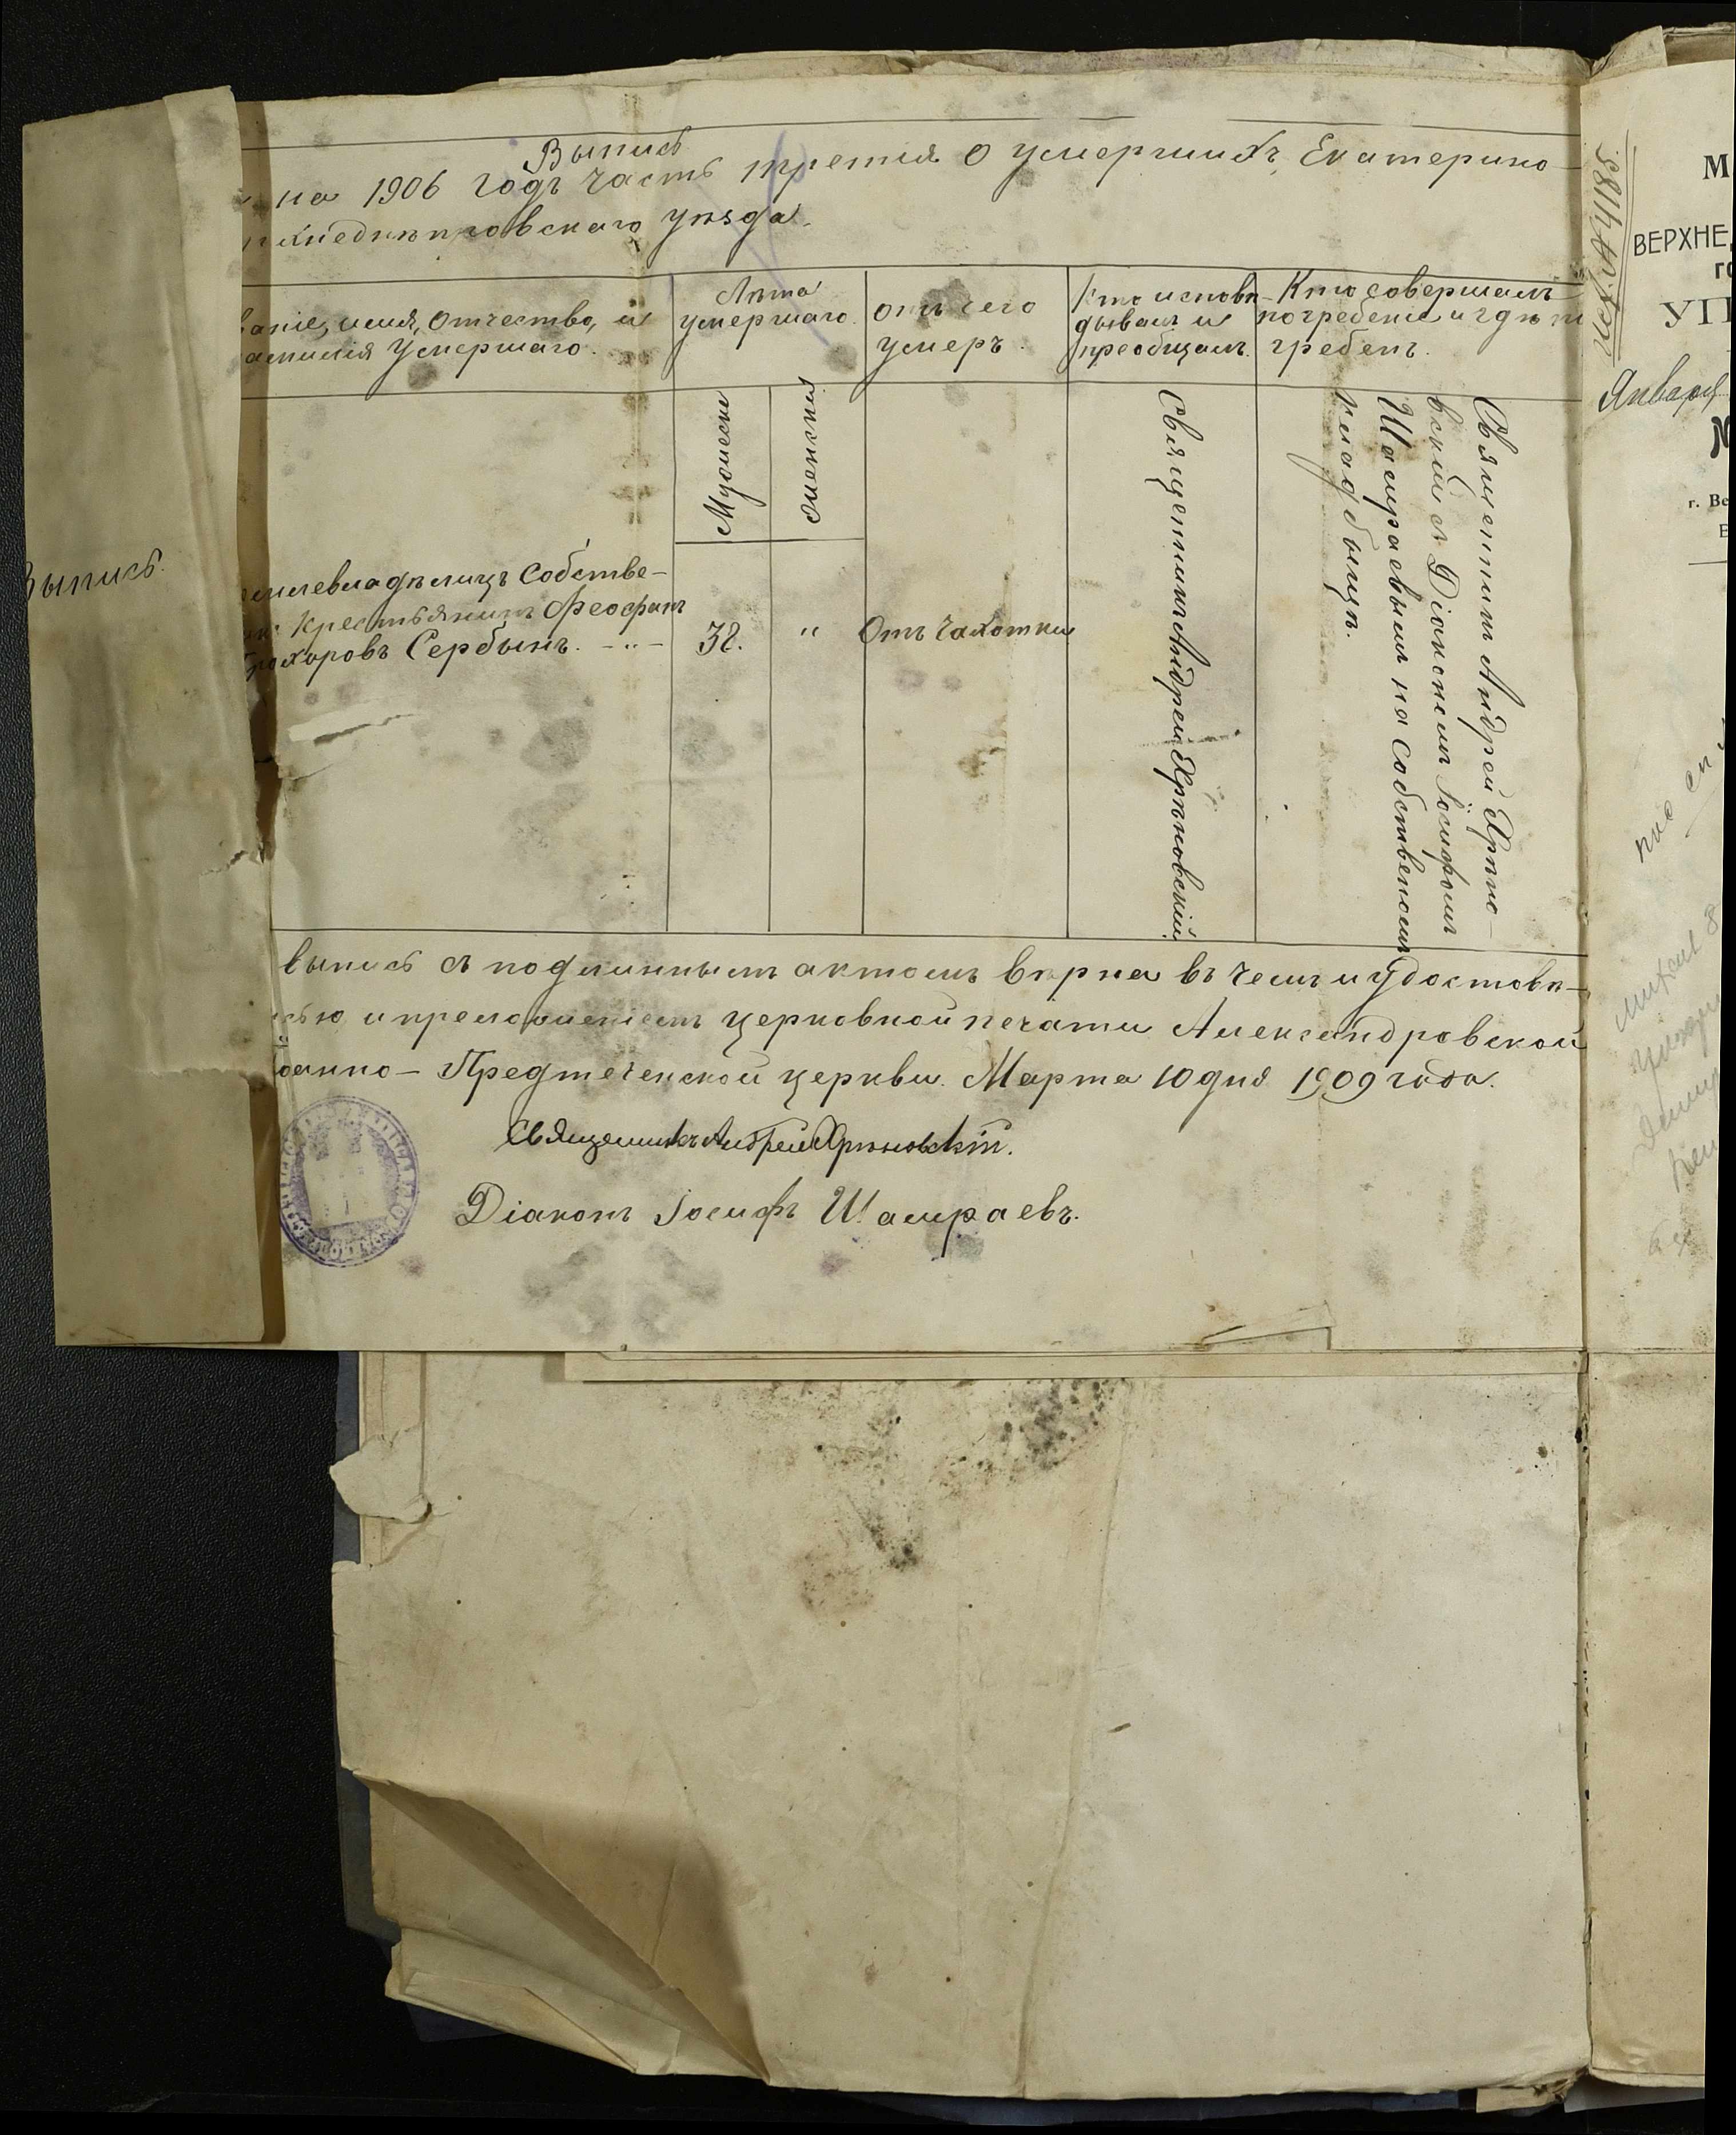 Выпись
на 1906 годъ часть третія о умершихъ, Екатерино-
хнеднѣпровскаго уѣзда.
ваніе, имя, отчество, и
амилія умершаго.
Лѣта
умершаго.
отъ чего
умеръ.
Кто исповѣ-
дывалъ и
преобщалъ.
Кто совершалъ
погребеніе и гдѣ по
гребенъ.
Мужеска
женскаго
Выпись.
емлевладѣлицъ Собстве-
Крестьянинъ Феофанъ
Прохоровъ Сербынъ. - „ -
38.
"
Отъ чахотки
Священникъ Андрей Хрѣновскій.
Священникъ Андрей Хрѣно-
вскій съ Діакономъ Іосифомъ
Шамраевымъ на Собственомъ
кладбищѣ.
выпись съ подлиннымъ актомъ вѣрна въ чемъ и удостовѣ-
сью и приложеніемъ церковной печати Александровской
оанно-Предтеченской церкви. Марта 10 дня 1909 года.
Священникъ Андрей Хрѣновскій.
Діаконъ Іосифъ Шамраевъ.
М
ВЕРХНЕ
го
УП
Января
№
г. Ве